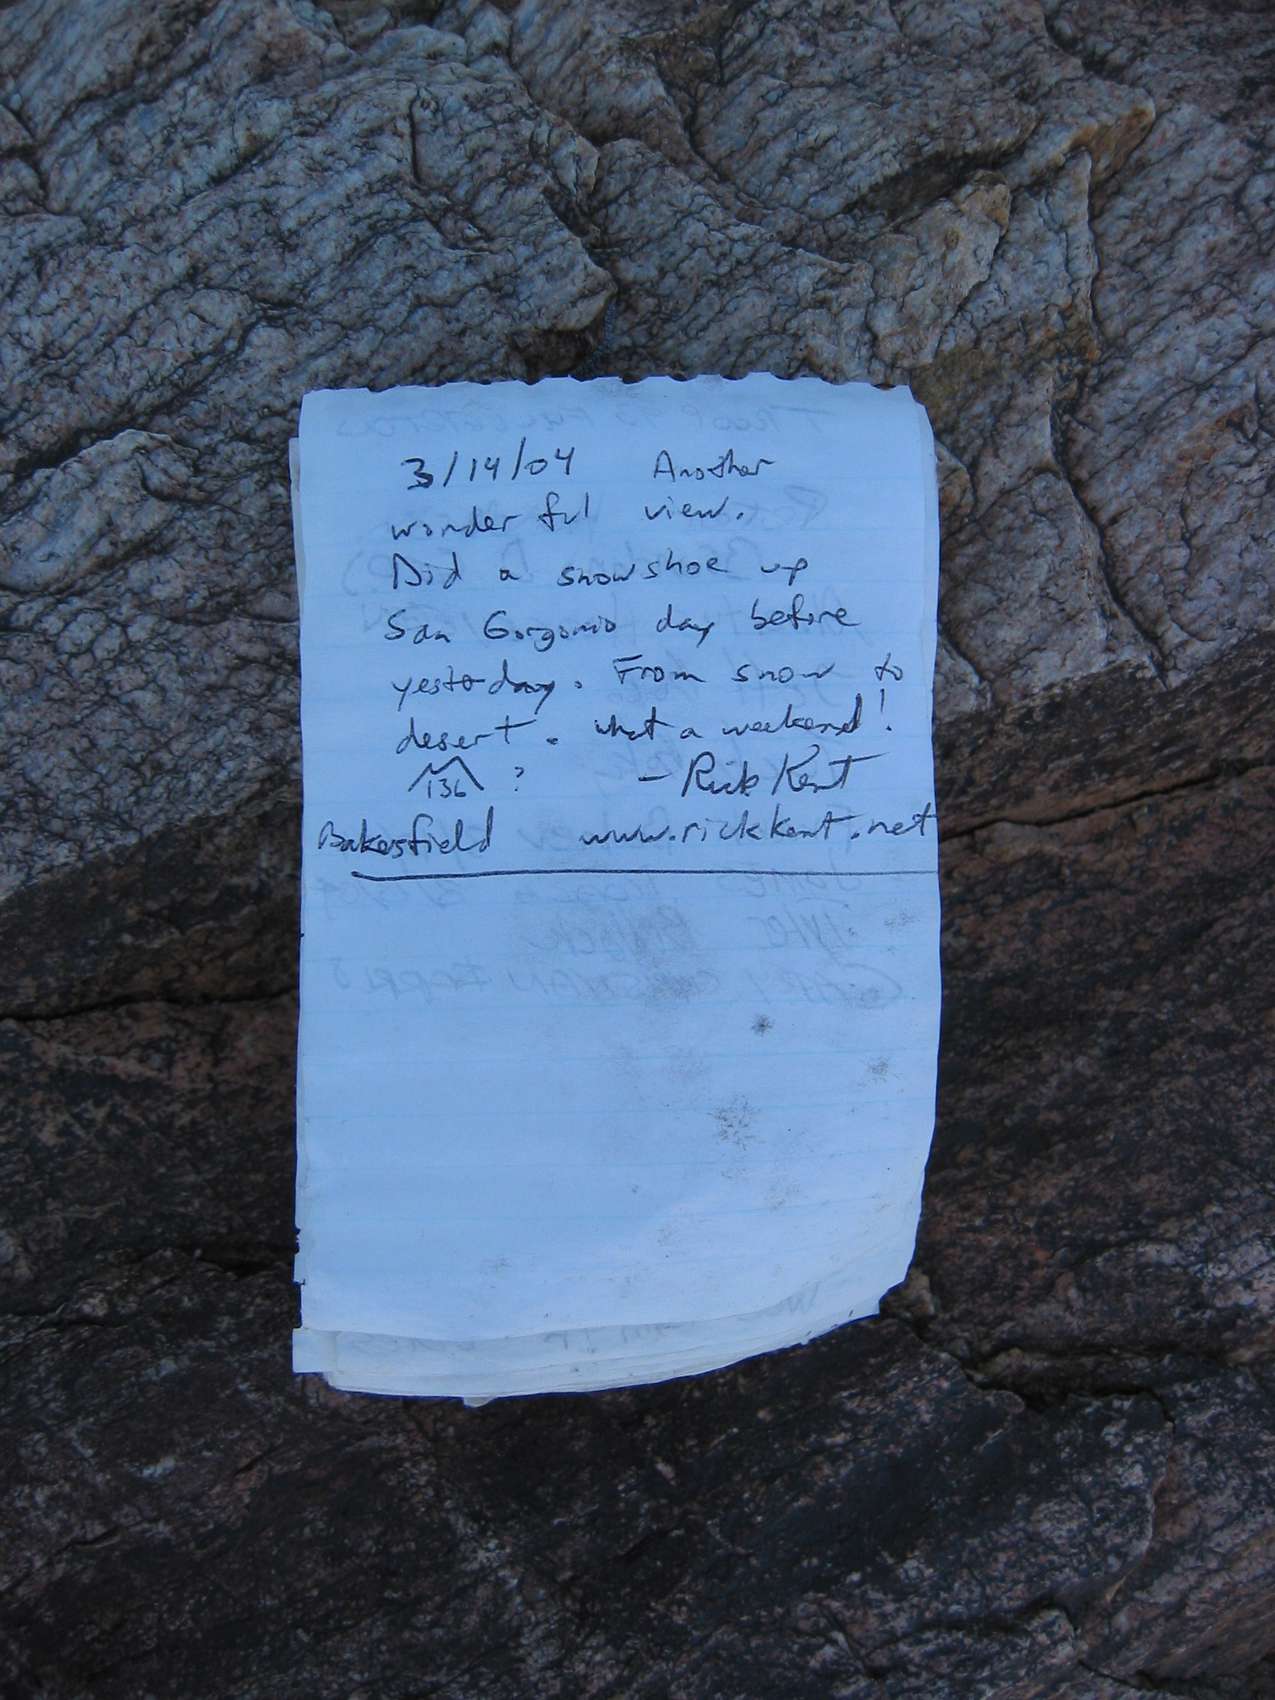 3/14/04 Another
wonderful view.
Did a snowshoe up
San Gorgonio day before
yesterday. From snow to
desert. what a weekend!
136 ? - Rick Kent
Bakersfield www.rickkent.net